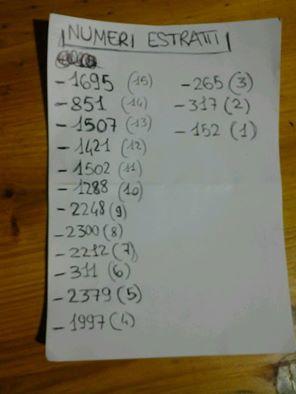 NUMERI ESTRATTI
-1695 (15)
-851 (14)
-1507 (13)
-1421 (12)
-1502 (11)
-1288 (10)
-2248 (9)
-2300 (8)
-2212 (7)
-311 (6)
-2379 (5)
-1997 (4)
-265 (3)
-317 (2)
-152 (1)